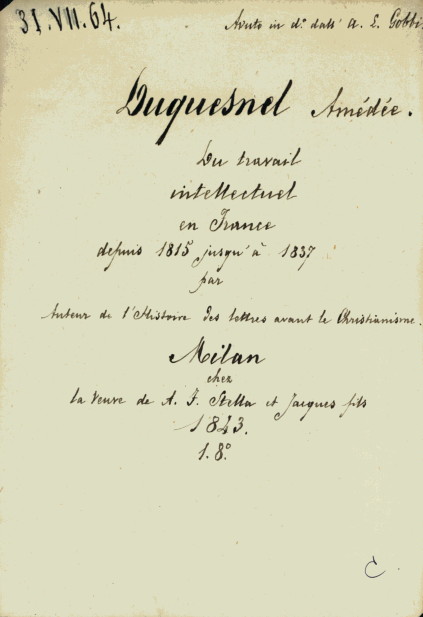 31.VII.64.
Avuto in d.º dall' A. E. Gobbi.
Duquesnel Amédée.
Du travail
intellectuel
en France
depuis 1815 jusqu'à 1837
par
Auteur de l'Histoire des lettres avant le Christianisme.
Milan
chez
la veuve de A. F. Stella et Jacques fils
1843.
1.8º.
C